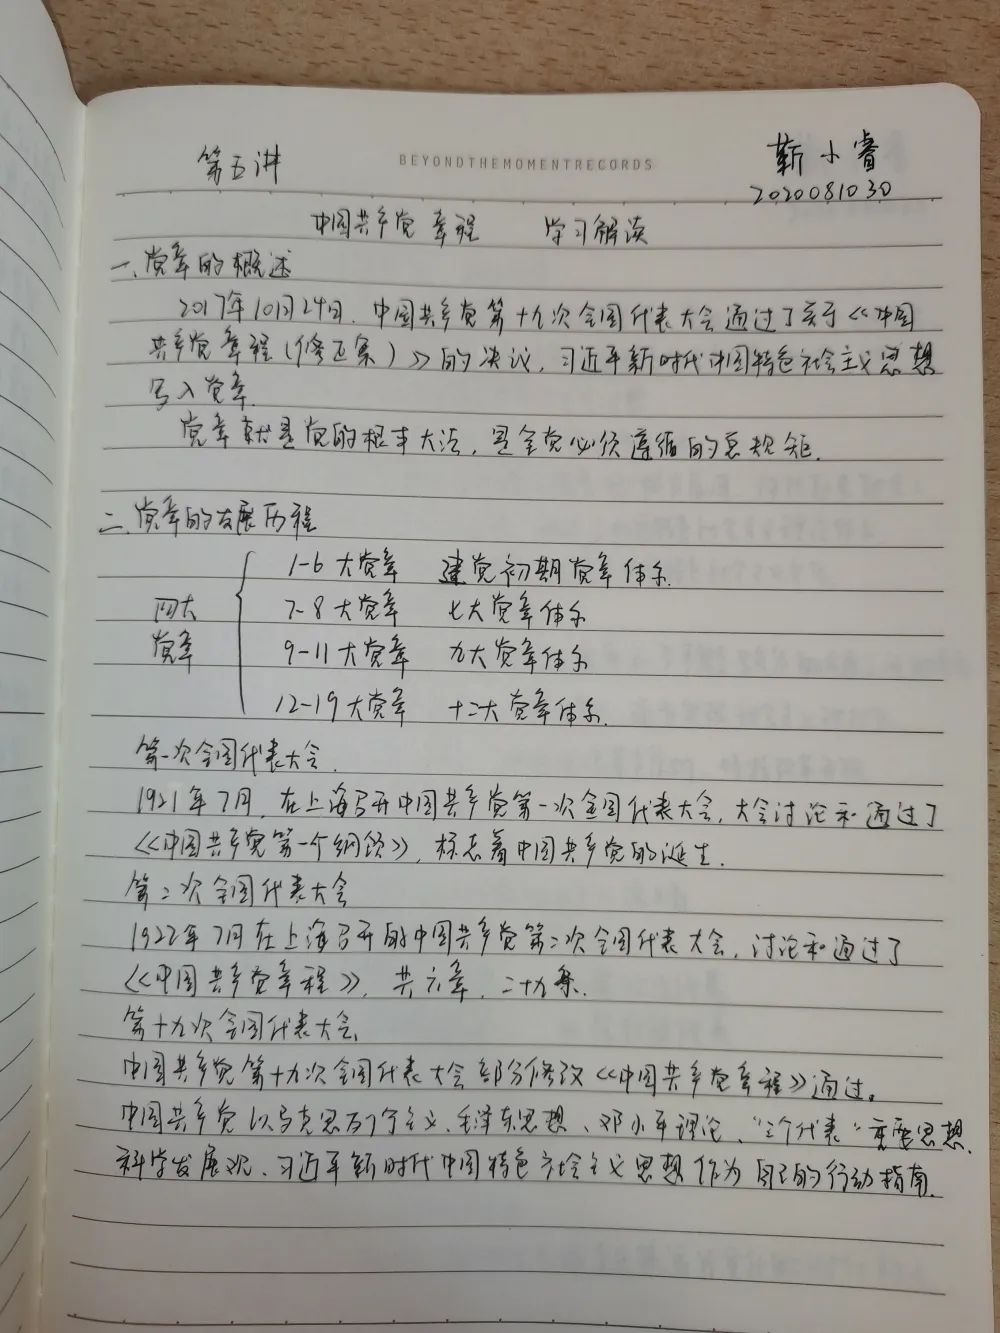 第五讲 BEYONDTHEMOMENTRECORDS 靳小睿
2020081030
中国共产党章程 学习解读
一、党章的概述
2017年10月24日，中国共产党第十九次全国代表大会通过了关于《中国
共产党章程(修正案)》的决议，习近平新时代中国特色社会主义思想
写入党章.
党章就是党的根本大法，是全党必须遵循的总规矩.
二、党章的发展历程
1-6大党章 建党初期党章体系.
四大 7-8大党章 七大党章体系
党章 9-11大党章 九大党章体系
12-19大党章 十二大党章体系.
第一次全国代表大会.
1921年7月，在上海召开中国共产党第一次全国代表大会，大会讨论和通过了
《中国共产党第一个纲领》，标志着中国共产党的诞生.
第二次全国代表大会
1922年7月在上海召开的中国共产党第二次全国代表大会，讨论和通过了
《中国共产党章程》，共六章，二十九条.
第十九次全国代表大会
中国共产党第十九次全国代表大会部分修改《中国共产党章程》通过。
中国共产党以马克思列宁主义、毛泽东思想、邓小平理论、“三个代表”重要思想、
科学发展观、习近平新时代中国特色社会主义思想作为自己的行动指南.